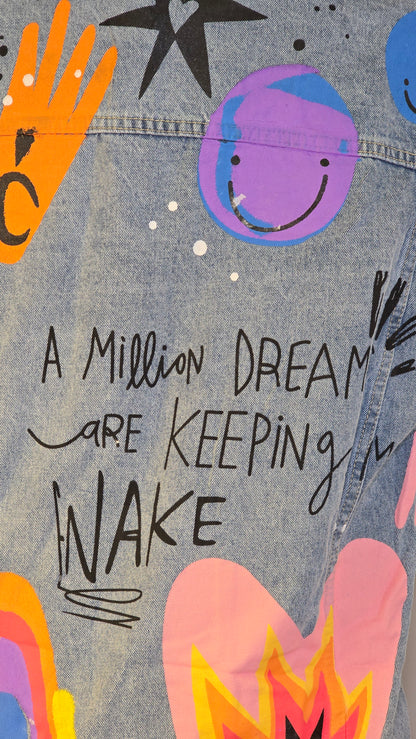 A Million DREAM
ARE KEEPing
WAKE